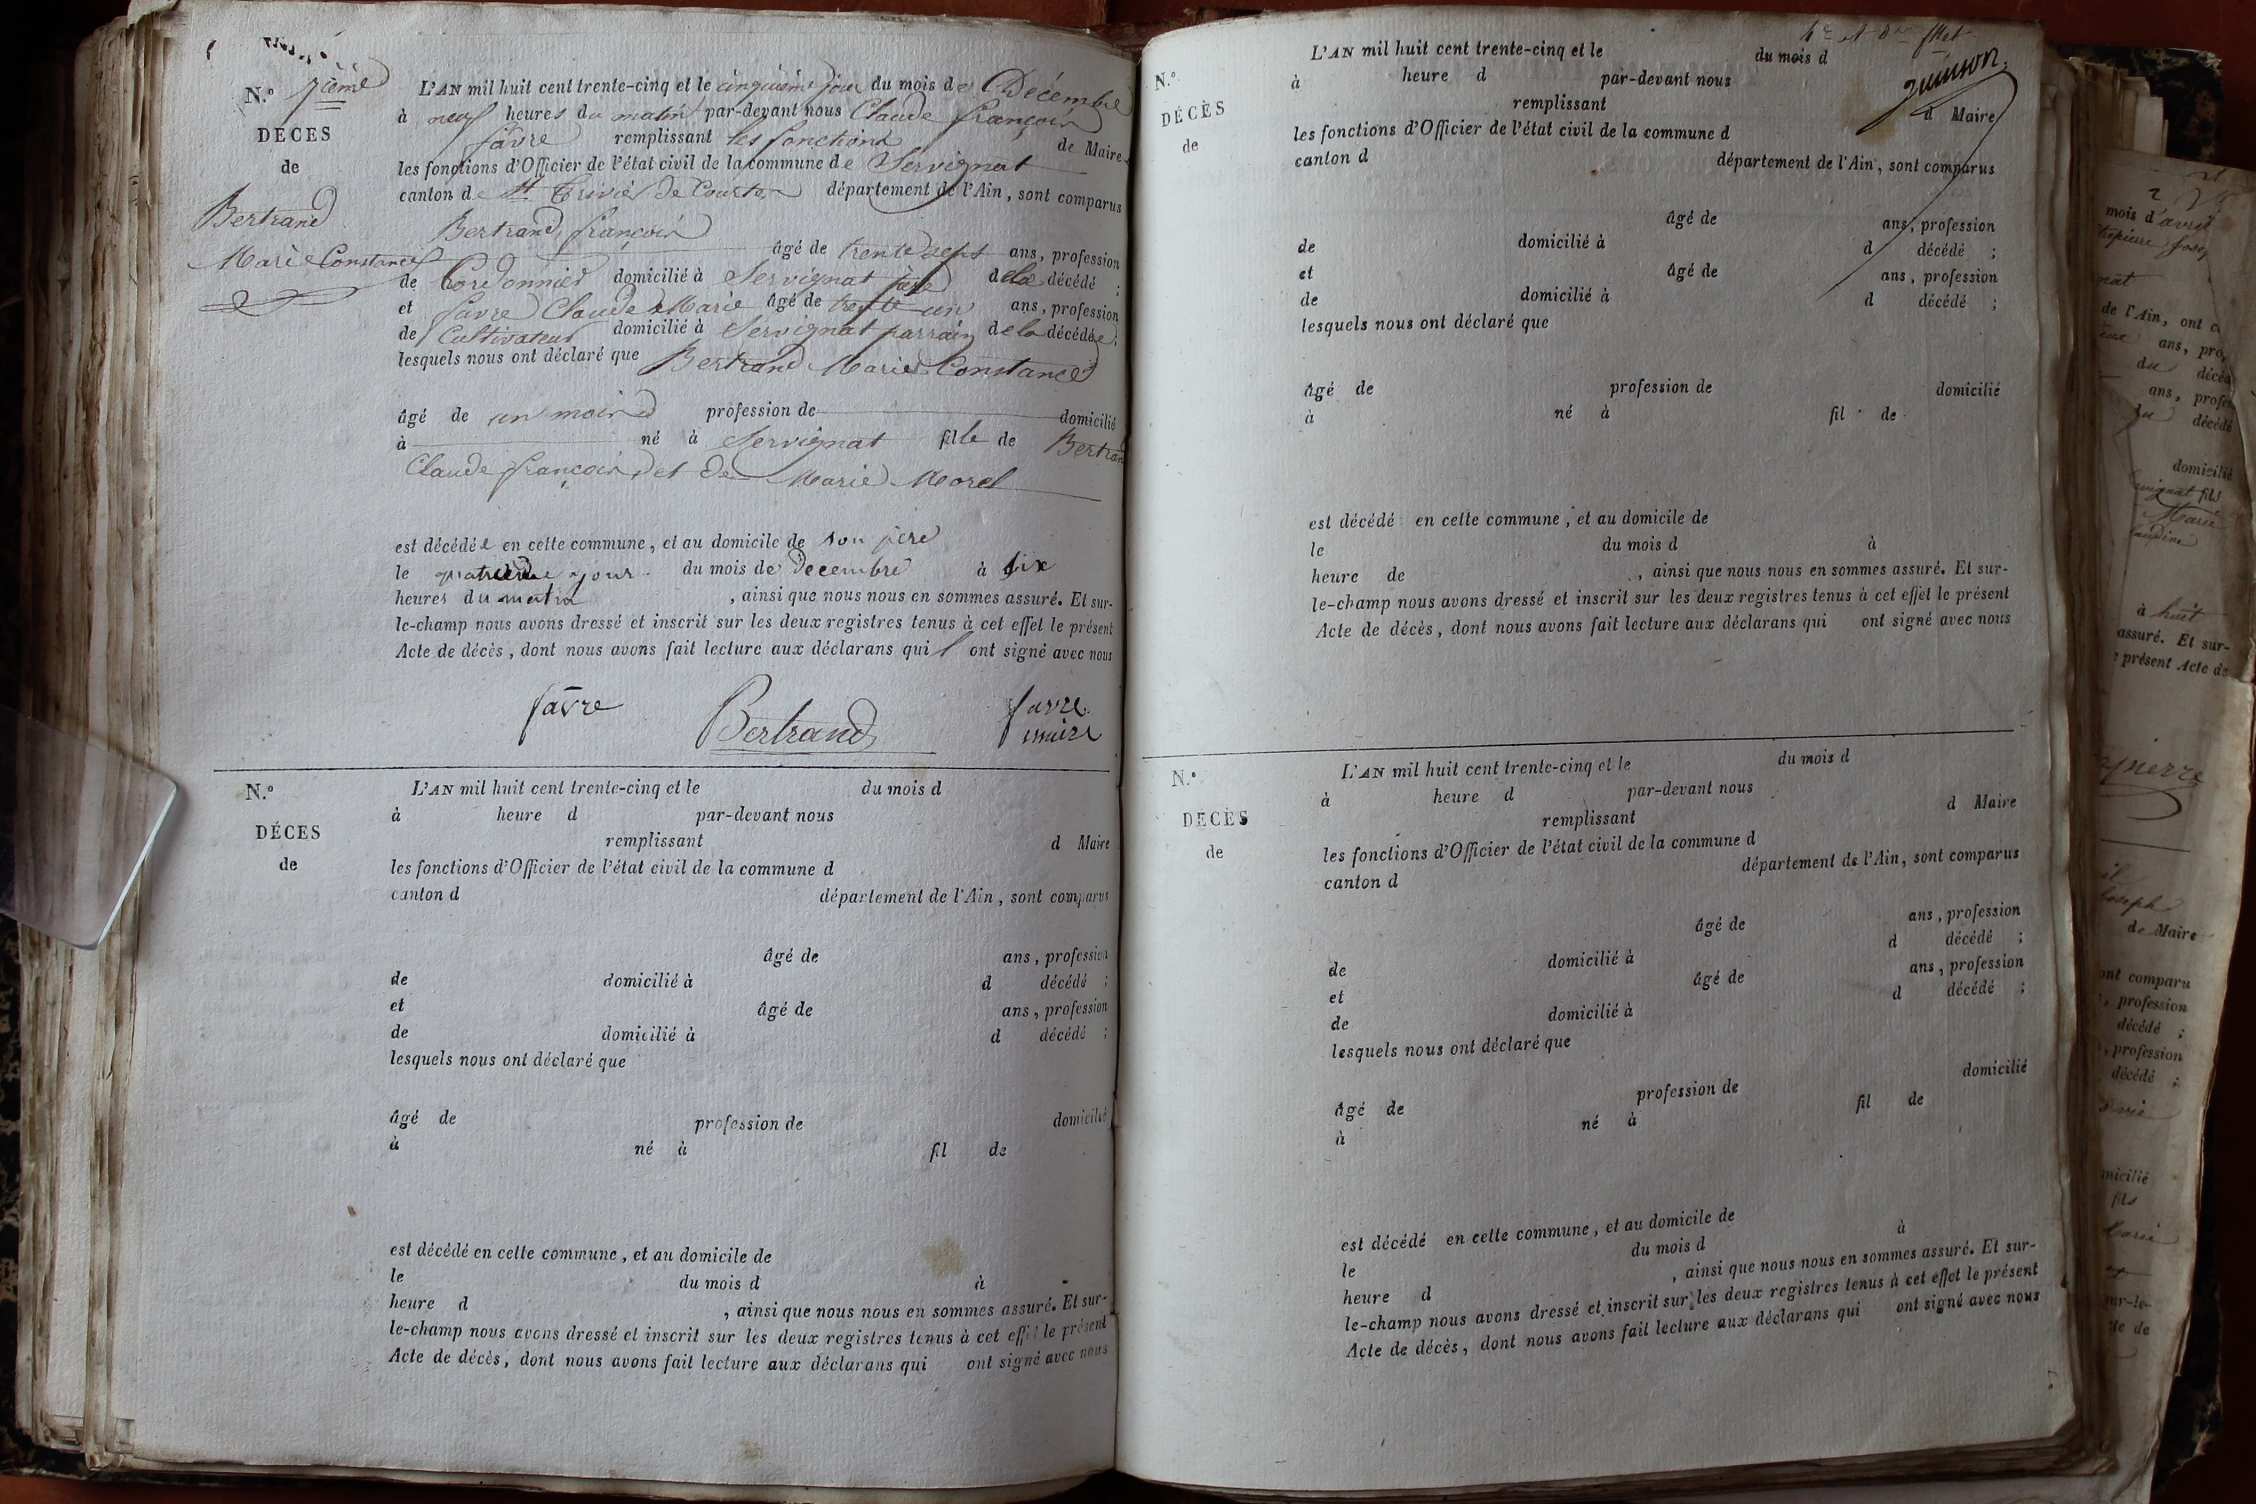 N.° 7ième
DÉCES
de
Bertrand
Marie Constance
L'AN mil huit cent trente-cinq et le cinquième jour du mois de Décembre
à neuf heures du matin par-devant nous Claude françois
favre remplissant les fonctions de Maire
les fonctions d'Officier de l'état civil de la commune de Servignat
canton de St Trivier de Courtes département de l'Ain, sont comparus
Bertrand françois
âgé de trente sept ans, profession
de Cordonnier domicilié à Servignat père de la décédé ;
et favre Claude Marie âgé de trente un ans, profession
de Cultivateur domicilié à Servignat parrain de la décédée ;
lesquels nous ont déclaré que Bertrand Marie Constance
âgé de un mois profession de domicilié
à né à Servignat fille de Bertrand
Claude françois et de Marie Morel
est décédée en cette commune, et au domicile de son père
le quatrième jour du mois de Decembre à six
heures du matin, ainsi que nous nous en sommes assuré. Et sur-
le-champ nous avons dressé et inscrit sur les deux registres tenus à cet effet le présent
Acte de décès, dont nous avons fait lecture aux déclarans qui ont signé avec nous
favre Bertrand favre
maire
N.°
DÉCES
de
L'AN mil huit cent trente-cinq et le du mois d
à heure d par-devant nous
remplissant d Maire
les fonctions d'Officier de l'état civil de la commune d
canton d département de l'Ain, sont comparus
âgé de ans, profession
de domicilié à d décédé ;
et âgé de ans, profession
de domicilié à d décédé ;
lesquels nous ont déclaré que
âgé de profession de domicilié
à né à fil de
est décédé en cette commune, et au domicile de
le du mois d à
heure d , ainsi que nous nous en sommes assuré. Et sur-
le-champ nous avons dressé et inscrit sur les deux registres tenus à cet effet le présent
Acte de décès, dont nous avons fait lecture aux déclarans qui ont signé avec nous
N.°
DÉCÈS
de
L'AN mil huit cent trente-cinq et le du mois d
à heure d par-devant nous
remplissant d Maire
les fonctions d'Officier de l'état civil de la commune d
canton d département de l'Ain, sont comparus
âgé de ans, profession
de domicilié à d décédé ;
et âgé de ans, profession
de domicilié à d décédé ;
lesquels nous ont déclaré que
âgé de profession de domicilié
à né à fil de
est décédé en cette commune, et au domicile de
le du mois d à
heure de , ainsi que nous nous en sommes assuré. Et sur-
le-champ nous avons dressé et inscrit sur les deux registres tenus à cet effet le présent
Acte de décès, dont nous avons fait lecture aux déclarans qui ont signé avec nous
N.°
DÉCÈS
de
L'AN mil huit cent trente-cinq et le du mois d
à heure d par-devant nous
remplissant d Maire
les fonctions d'Officier de l'état civil de la commune d
canton d département de l'Ain, sont comparus
âgé de ans, profession
de domicilié à d décédé ;
et âgé de ans, profession
de domicilié à d décédé ;
lesquels nous ont déclaré que
âgé de profession de domicilié
à né à fil de
est décédé en cette commune, et au domicile de
le du mois d à
heure d , ainsi que nous nous en sommes assuré. Et sur-
le-champ nous avons dressé et inscrit sur les deux registres tenus à cet effet le présent
Acte de décès, dont nous avons fait lecture aux déclarans qui ont signé avec nous
mois d'avril
de l'Ain, ont
ans,
du
ans,
décédé
domicilié
fils
Marie
à huit
assuré. Et sur-
présent Acte de
Joseph
de Maire
profession
décédé ;
, profession
décédé ;
fils